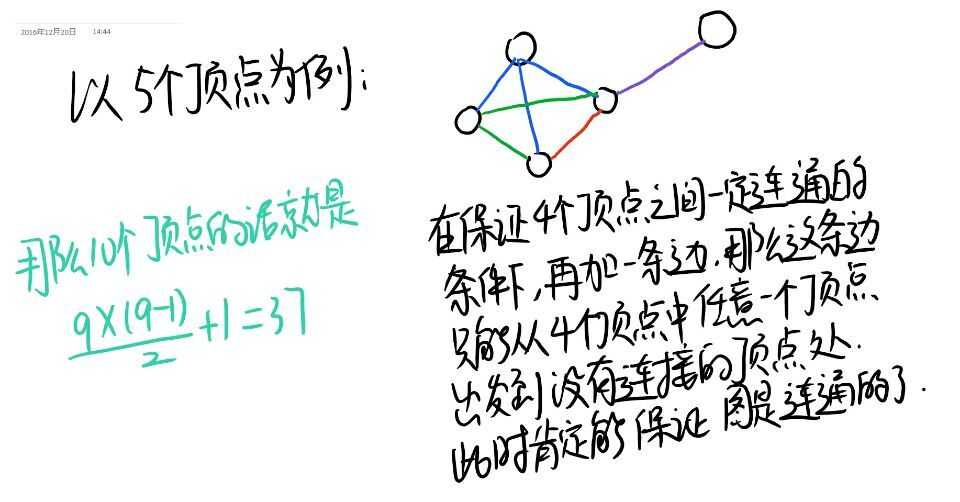 2016年12月20日 14:44
以5个顶点为例:
那么10个顶点的话就是
9×(9-1)/2+1=37
在保证4个顶点之间一定连通的
条件下,再加一条边.那么这条边
只能从4个顶点中任意一个顶点
出发到没有连接的顶点处.
此时肯定能保证图是连通的了.